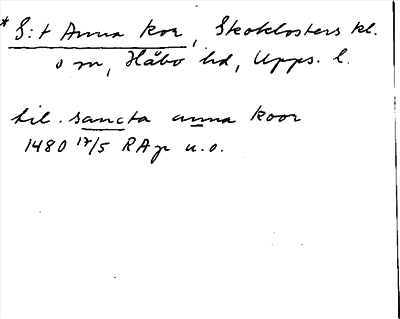 * S:t Anna kor, Skoklosters kl.
o m, Håbo hd, Upps. l.
til. sancta anna koor
1480 17/5 RAp u.o.